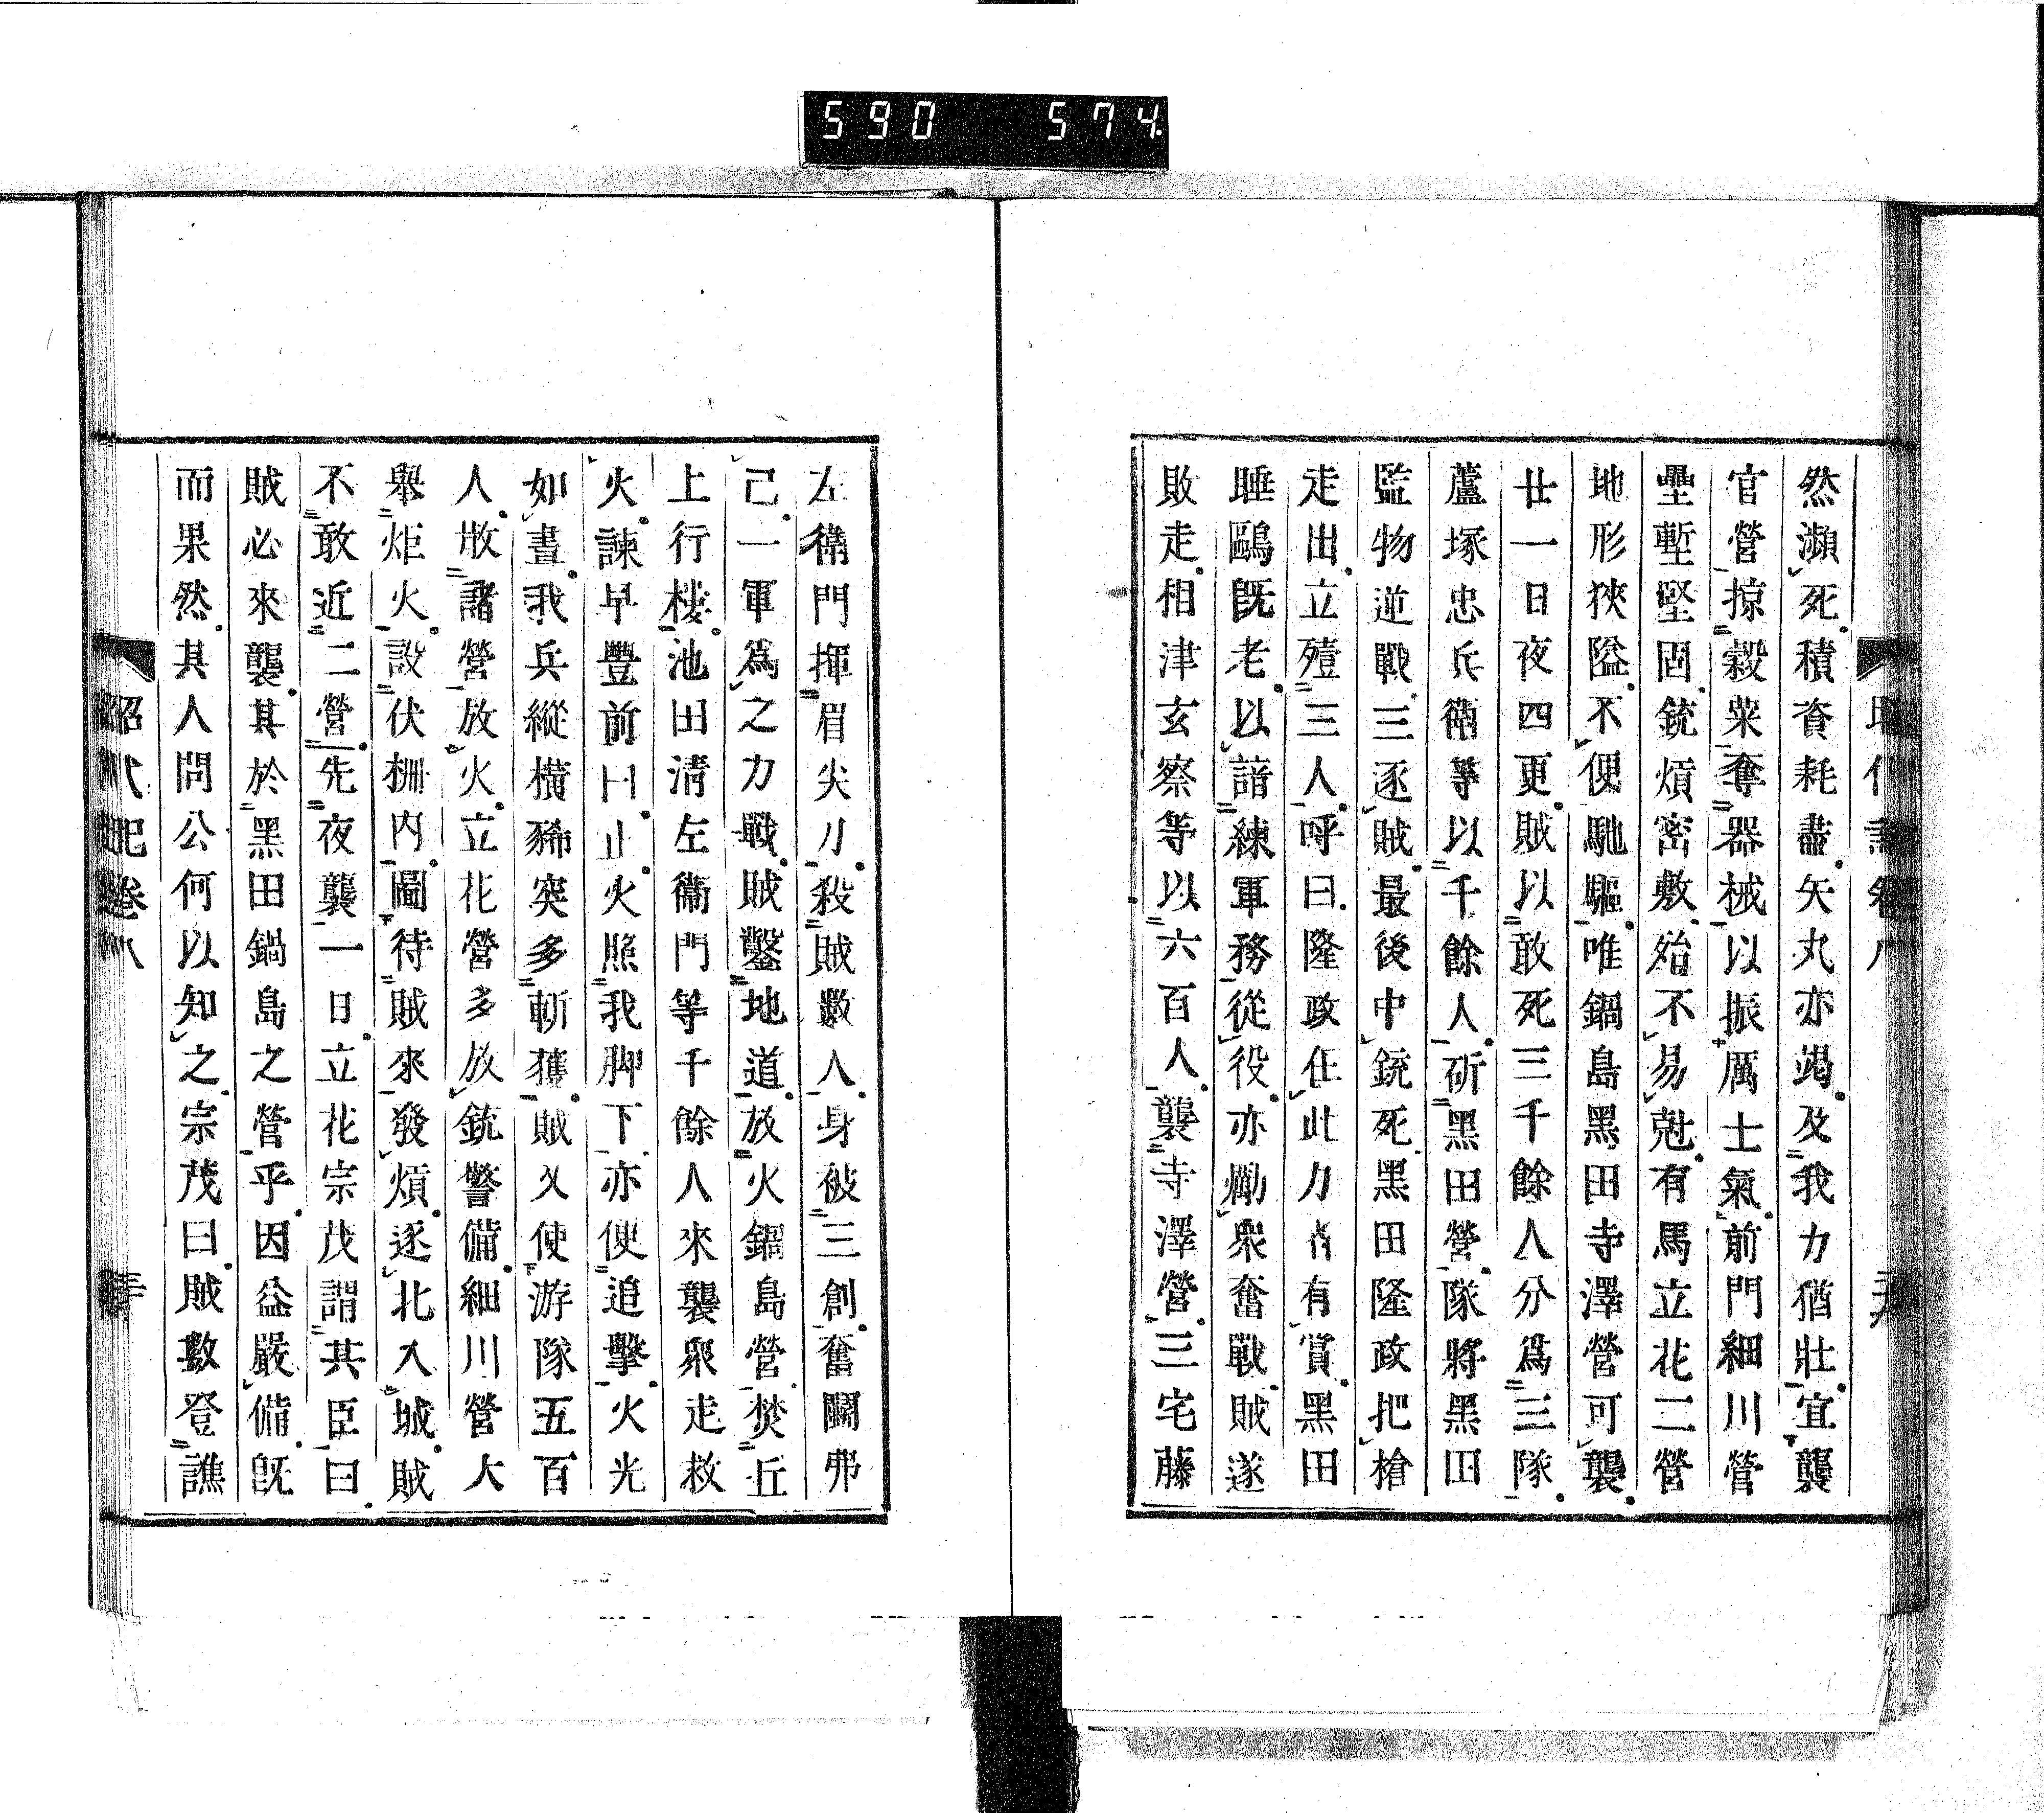 590 574
然瀕死積資耗盡矢丸亦竭及我力猶壯宜襲
官營掠穀粟奪器械以振厲士氣前門細川營
壘塹堅固銃熕密敷殆不易剋有馬立花二營
地形狹隘不便馳驅唯鍋島黑田寺澤營可襲
廿一日夜四更賊以敢死三千餘人分爲三隊
蘆塚忠兵衛等以千餘人斫黑田營隊將黑田
監物逆戰三逐賊最後中銃死黑田隆政把槍
走出立殪三人呼曰隆政在此力者有賞黑田
睡鷗旣老以諳練軍務從役亦勵衆奮戰賊遂
敗走相津玄察等以六百人襲寺澤營三宅藤
左衛門揮眉尖刀殺賊數人身被三創奮鬭弗
己一軍爲之力戰賊鑿地道放火鍋島營焚丘
上行樓池田淸左衛門等千餘人來襲衆走救
火諫早豐前曰止火照我脚下亦便追擊火光
如晝我兵縱橫豨突多斬獲賊又使游隊五百
人散諸營放火立花營多放銃警備細川營大
舉炬火設伏柵内圖待賊來發熕逐北入城賊
不敢近二營先夜襲一日立花宗茂謂其臣曰
賊必來襲其於黑田鍋島之營乎因益嚴備旣
而果然其人問公何以知之宗茂曰賊數登譙
昭代記卷八